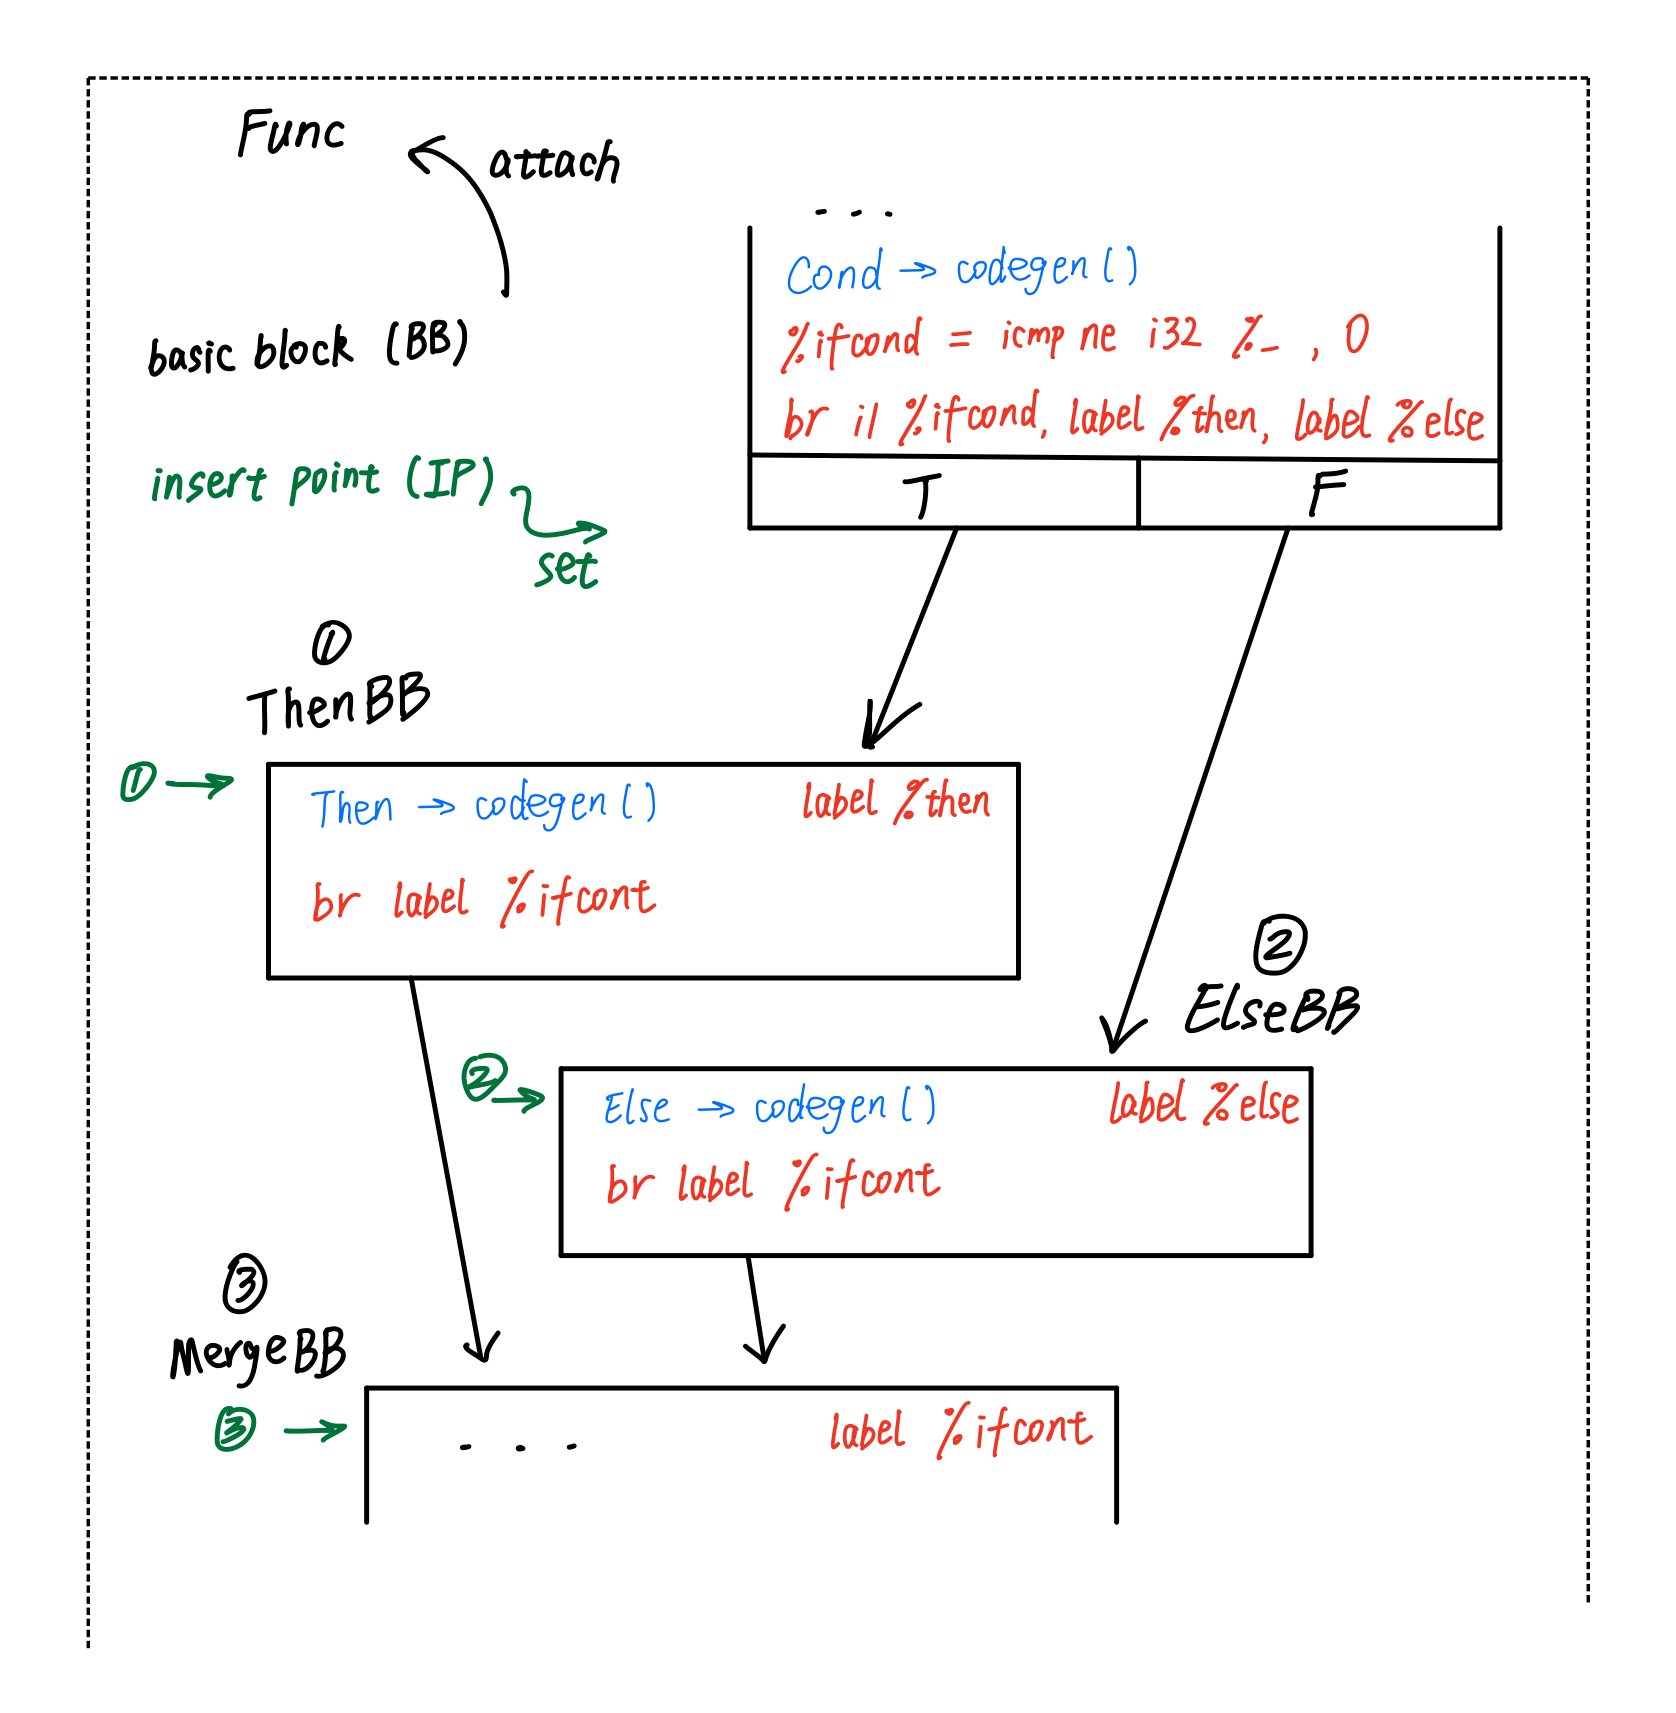 Func
attach
basic block (BB)
insert point (IP)
set
...
Cond → codegen()
%ifcond = icmp ne i32 %_ , 0
br i1 %ifcond, label %then, label %else
T F
①
ThenBB
① →
Then → codegen() label %then
br label %ifcont
②
ElseBB
② →
Else → codegen() label %else
br label %ifcont
③
MergeBB
③ →
... label %ifcont